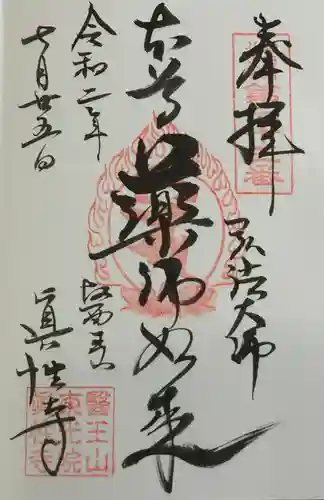 奉拝
弘法大師
本尊
薬師如来
医王山
眞性寺
令和二年
七月廿五日
醫王山
東光院
眞性寺